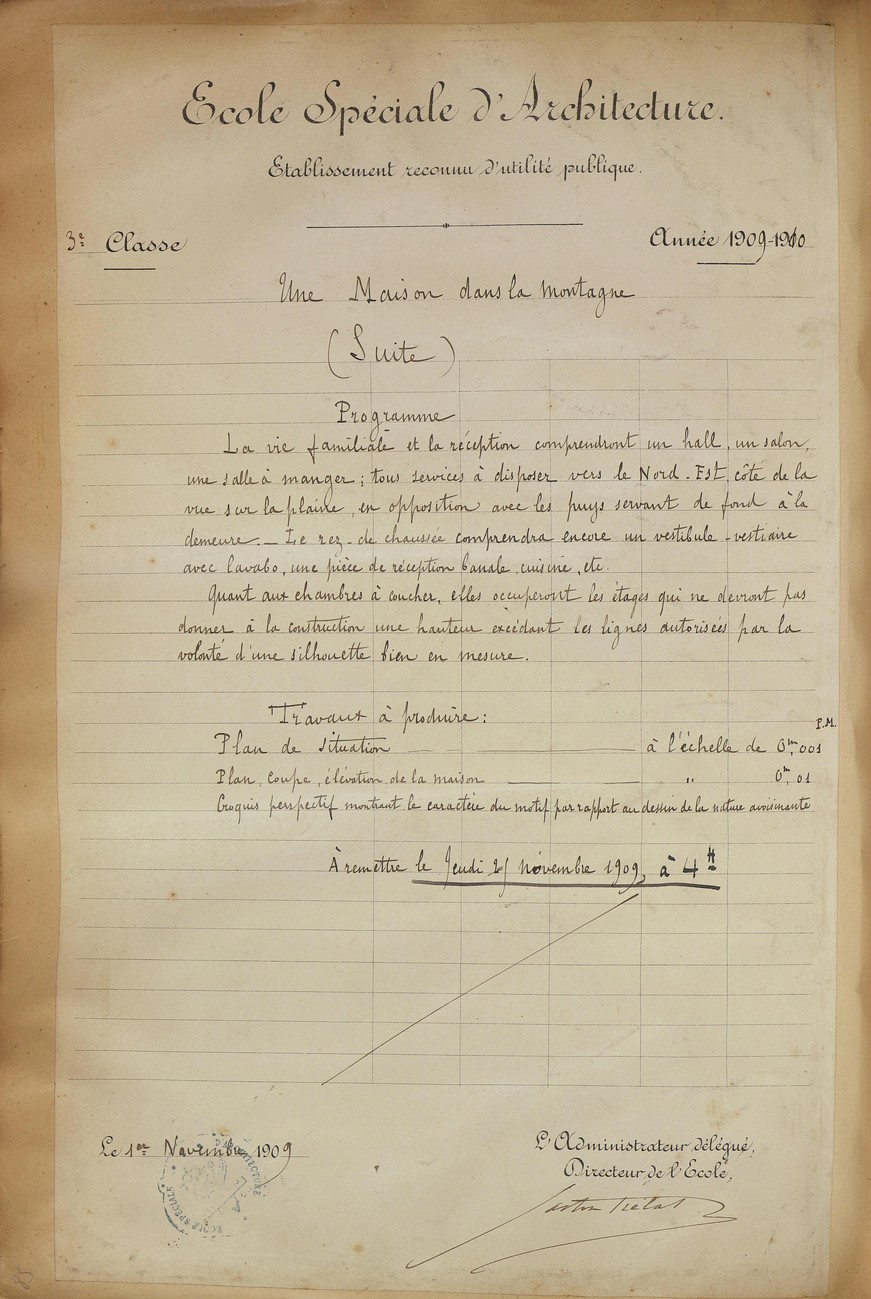 Ecole Spéciale d'Architecture.
Etablissement reconnu d'utilité publique.
3e Classe
Année 1909-1910
Une Maison dans la montagne
(Suite)
Programme
La vie familiale et la réception comprendront un hall, un salon,
une salle à manger ; tous services à disposer vers le Nord-Est, côté de la
vue sur la plaine, en opposition avec les puys servant de fond à la
demeure. — Le rez-de chaussée comprendra encore un vestibule-vestiaire
avec lavabo, une pièce de réception banale, cuisine, etc.
Quant aux chambres à coucher, elles occuperont les étages qui ne devront pas
donner à la construction une hauteur excédant les lignes autorisées par la
volonté d'une silhouette bien en mesure.
Travaux à produire :
P.M.
Plan de situation à l'échelle de 0m,001
Plan, coupe, élévation de la maison " 0m,01
Croquis perspectif montrant le caractère du motif par rapport au dessin de la nature avoisinante
À remettre le Jeudi 25 novembre 1909, à 4H
Le 1er Novembre 1909
L'Administrateur délégué,
Directeur de l'Ecole,
Gaston Trélat
ECOLE SPECIALE D'ARCHITECTURE